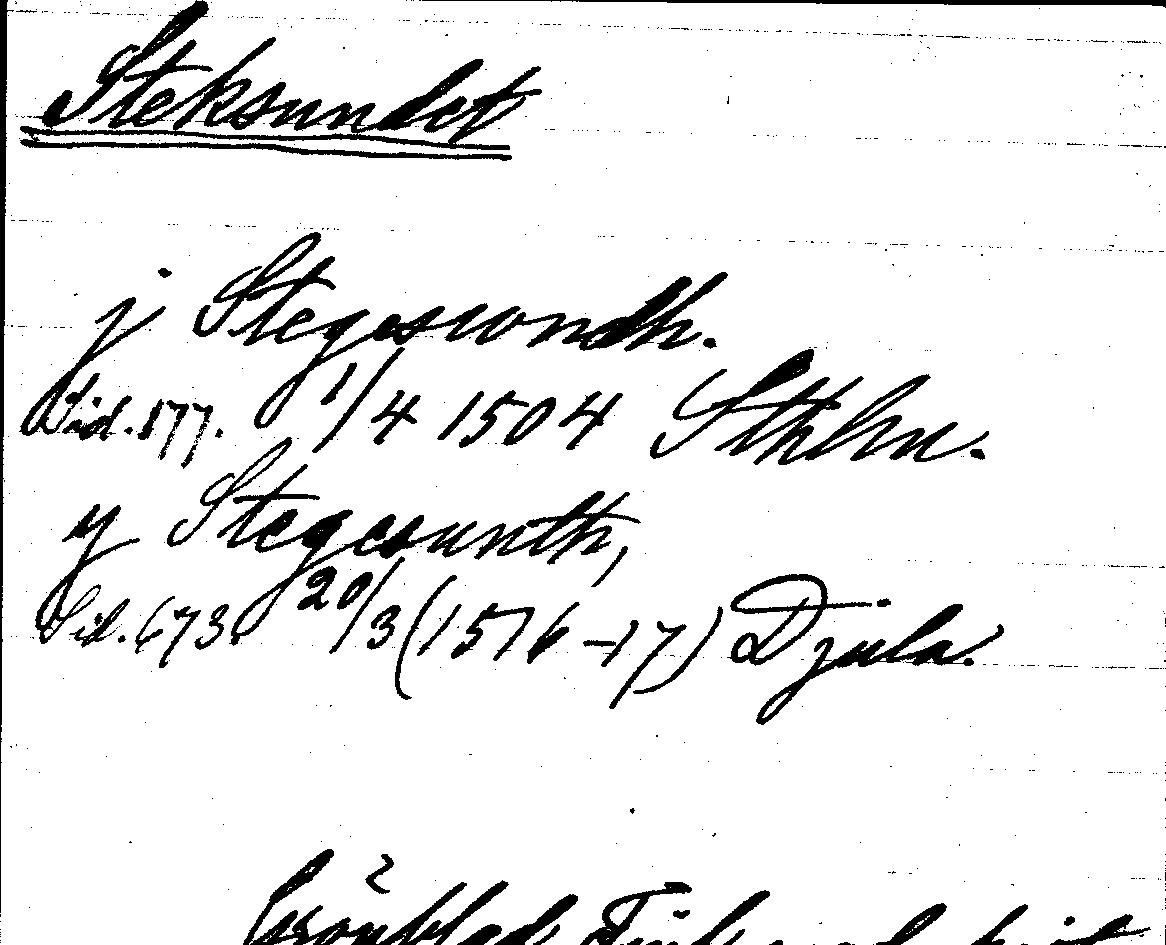 Steksundet
j Stegeswndh.
Sid. 577. 1/4 1504 Sthlm.
y Stegesunth,
Sid. 673. 20/3 (1516-17) Djula.
Grönblad,